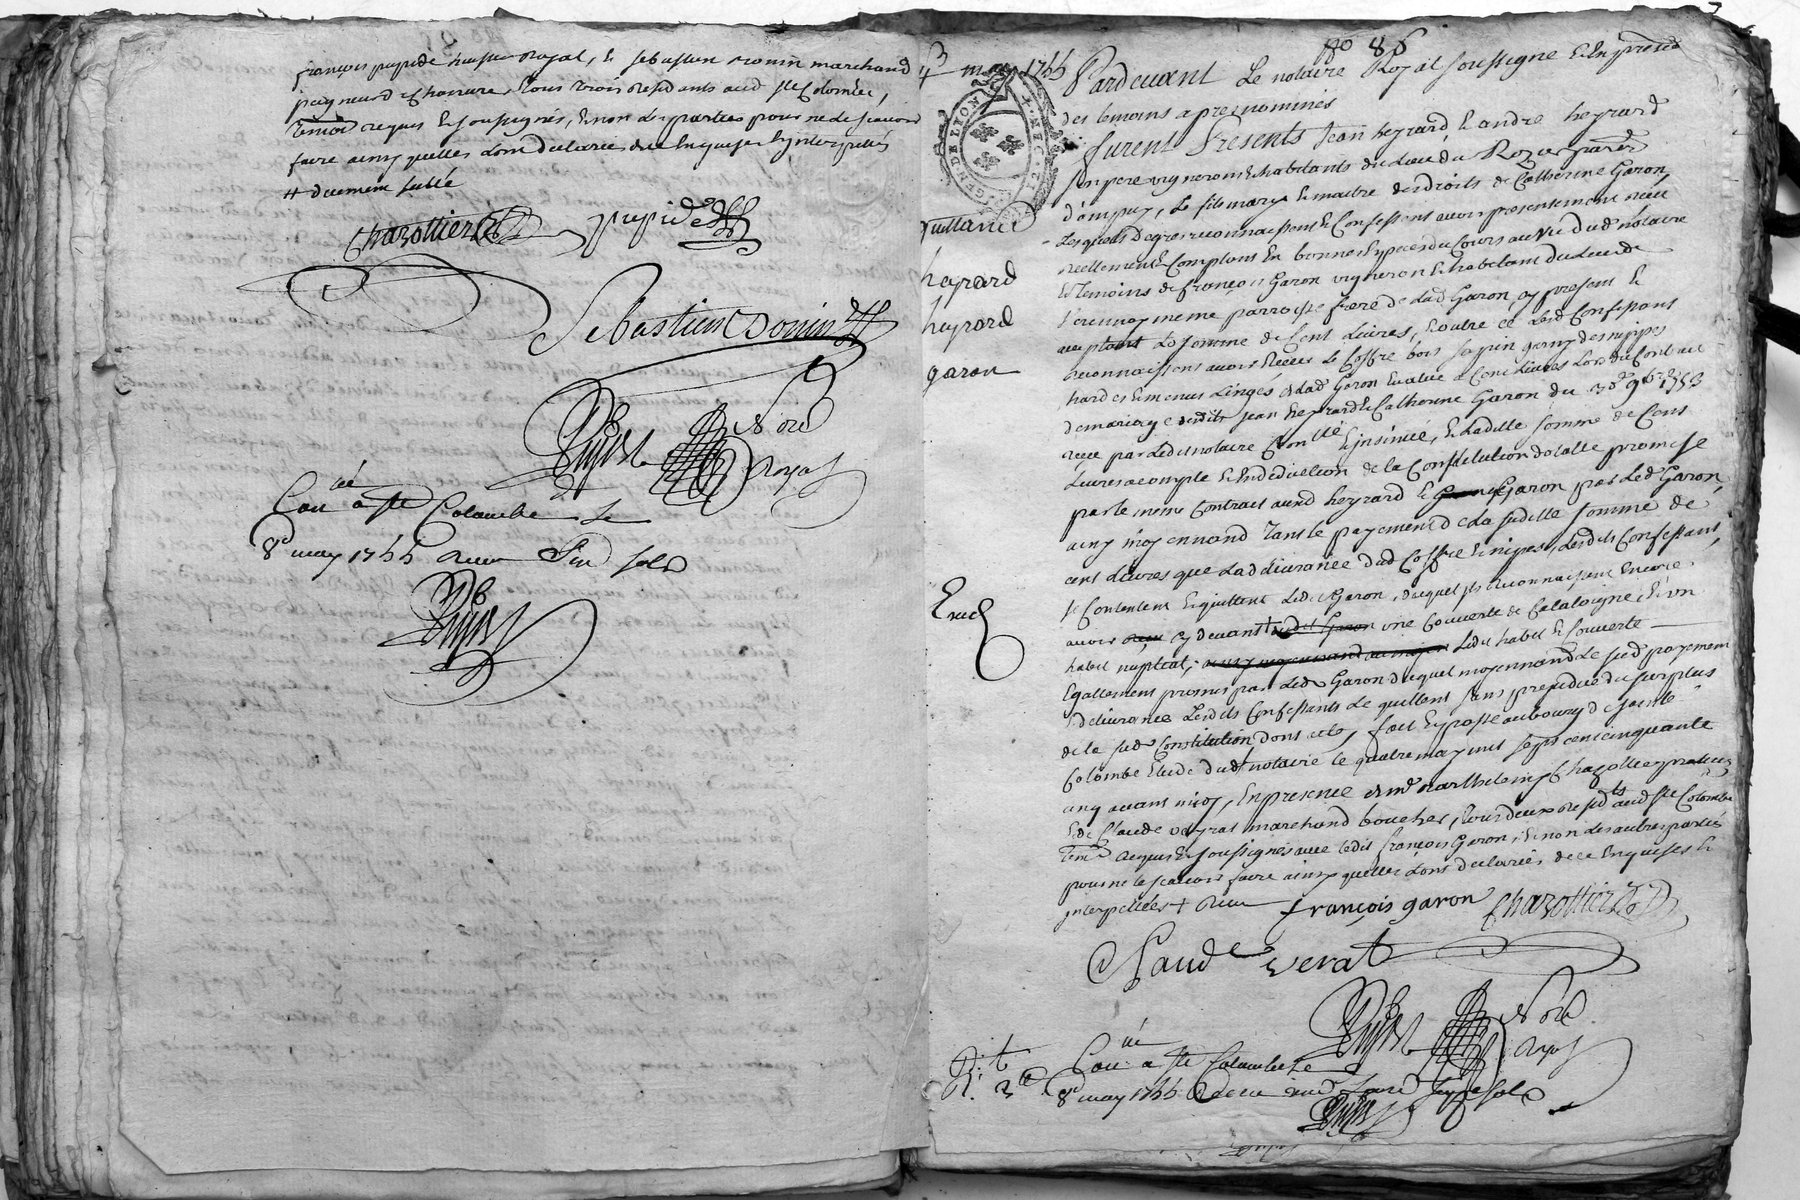 françois pupide huissier Royal, & sebastien donin marchand
peigneur de chanvre, tous trois residants aud ste Colombe,
temoins requis & soussignés, & non les parties pour ne le scavoir
faire ainsy quelles l'ont declaré de ce enquises & interpellés
+ duement
Chazottier
pupide
Sebastien Donin
No.re
Royal
Con.lé à ste Colombe le
8e may 1755 Receu six sols
4 may 1755
No 86
Pardevant Le notaire Royal soussigné & En presence
des temoins apres nommés
furent Presents Jean heyrard, & andre heyrard
son pere vignerons & habitants du Lieu du Rozey parr.e
d'ampuy, Le fils mary & maitre des droits de Catherine Garon,
Lesquels de gré reconnaissent & Confessent avoir presentement receu
reellement & Comptant En bonnes Especes du Cours au vu dud notaire
& temoins de françois Garon vigneron & habitant du Lieu de
meme parroisse frere de lad Garon, cy present &
acceptant La somme de Cent Livres, & outre ce Lesd Confessants
reconnaissent avoir Receu Le Coffre bois sapin garny des nippes
hardes & menus Linges de lad Garon Evalué a Cent Livres Lors du Contract
de mariage desdits Jean heyrard & Catherine Garon du 30e 9bre 1753
receu par Ledit notaire Con.llé & insinué, & Ladite somme de Cent
Livres acompte & En deduction de la Constitution dotalle promise
par le meme Contract aud heyrard & Garon par Led Garon,
ainsy moyennand tant le payement de La susdite somme de
cent Livres que La delivrance dud Coffre & nipes, Lesdits Confessants,
se Contentent & quittent Ledit Garon, duquel ils reconnaissent Encore
avoir receu cy devant une Couverte de Catalogne, & un
habit nuptial, Ledit habit & Couverte
Egallement promis par Led Garon duquel moyennand Le susd payement
& delivrance Lesdits Confessants Le quittent sans prejudice du surplus
de la susd Constitution, dont acte, fait & passé au bourg de sainte
Colombe Etude dud notaire le quatre may mil sept cent cinquante
cinq avant midy, En presence de me Barthelemy Chazottier praticien
& de Claude veyrat marchand boucher, tous deux residts aud ste Colombe
tem.s requis & soussignés avec ledit françois Garon, & non les autres parties
pour ne le scavoir faire ainsy quelles l'ont declaré de ce Enquises &
interpellées +
quittance
heyrard
heyrard
garon
Exp
françois garon
Chazottier
Claude verat
No.re
Royal
Con.lé à ste Colombe le
8e may 1755 Receu